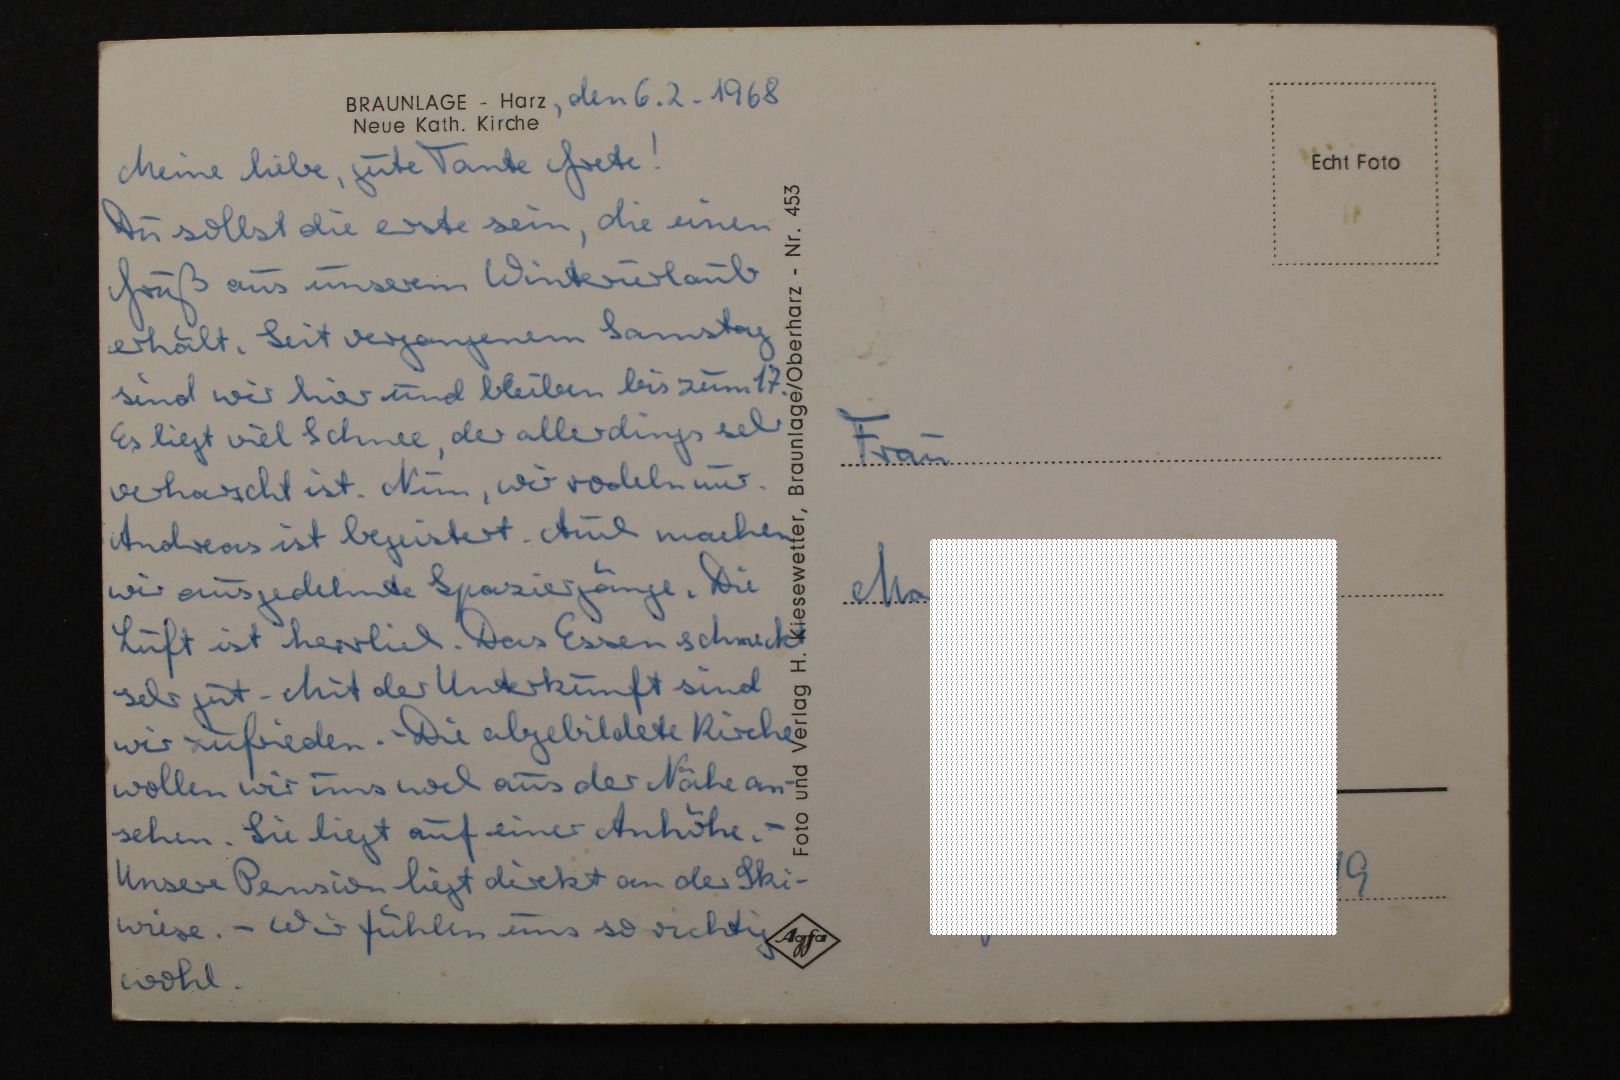 BRAUNLAGE - Harz, den 6.2.1968
Neue Kath. Kirche
Meine liebe, gute Tante Grete!
Du sollst die erste sein, die einen
Gruß aus unserem Winterurlaub
erhält. Seit vergangenem Samstag
sind wir hier und bleiben bis zum 17.
Es liegt viel Schnee, der allerdings sehr
verharscht ist. Nun, wir rodeln nur.
Andreas ist begeistert. Auch machen
wir ausgedehnte Spaziergänge. Die
Luft ist herrlich. Das Essen schmeckt
sehr gut - Mit der Unterkunft sind
wir zufrieden. - Die abgebildete Kirche
wollen wir uns noch aus der Nähe an-
sehen. Sie liegt auf einer Anhöhe. -
Unsere Pension liegt direkt an der Ski-
wiese. - Wir fühlen uns so richtig
wohl.
Foto und Verlag H. Kiesewetter, Braunlage/Oberharz - Nr. 453
Agfa
Echt Foto
Frau
Ma
19